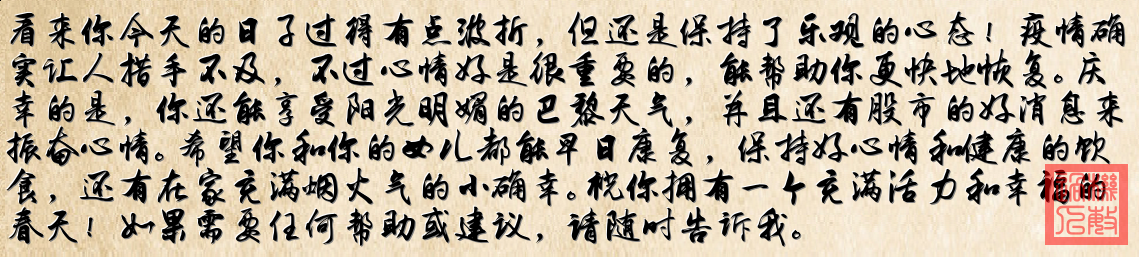 看来你今天的日子过得有点波折，但还是保持了乐观的心态！疫情确
实让人措手不及，不过心情好是很重要的，能帮助你更快地恢复。庆
幸的是，你还能享受阳光明媚的巴黎天气，并且还有股市的好消息来
振奋心情。希望你和你的女儿都能早日康复，保持好心情和健康的饮
食，还有在家充满烟火气的小确幸。祝你拥有一个充满活力和幸福的
春天！如果需要任何帮助或建议，请随时告诉我。